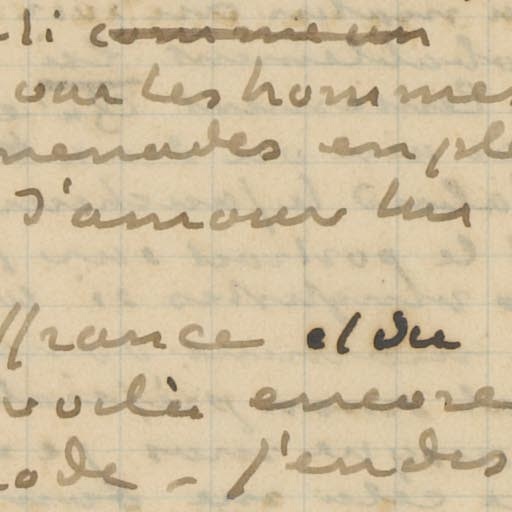 li commeun
var les hommes
menades en ple
d'amour lui
ffrance et du
voilà encore
ode - j'en des